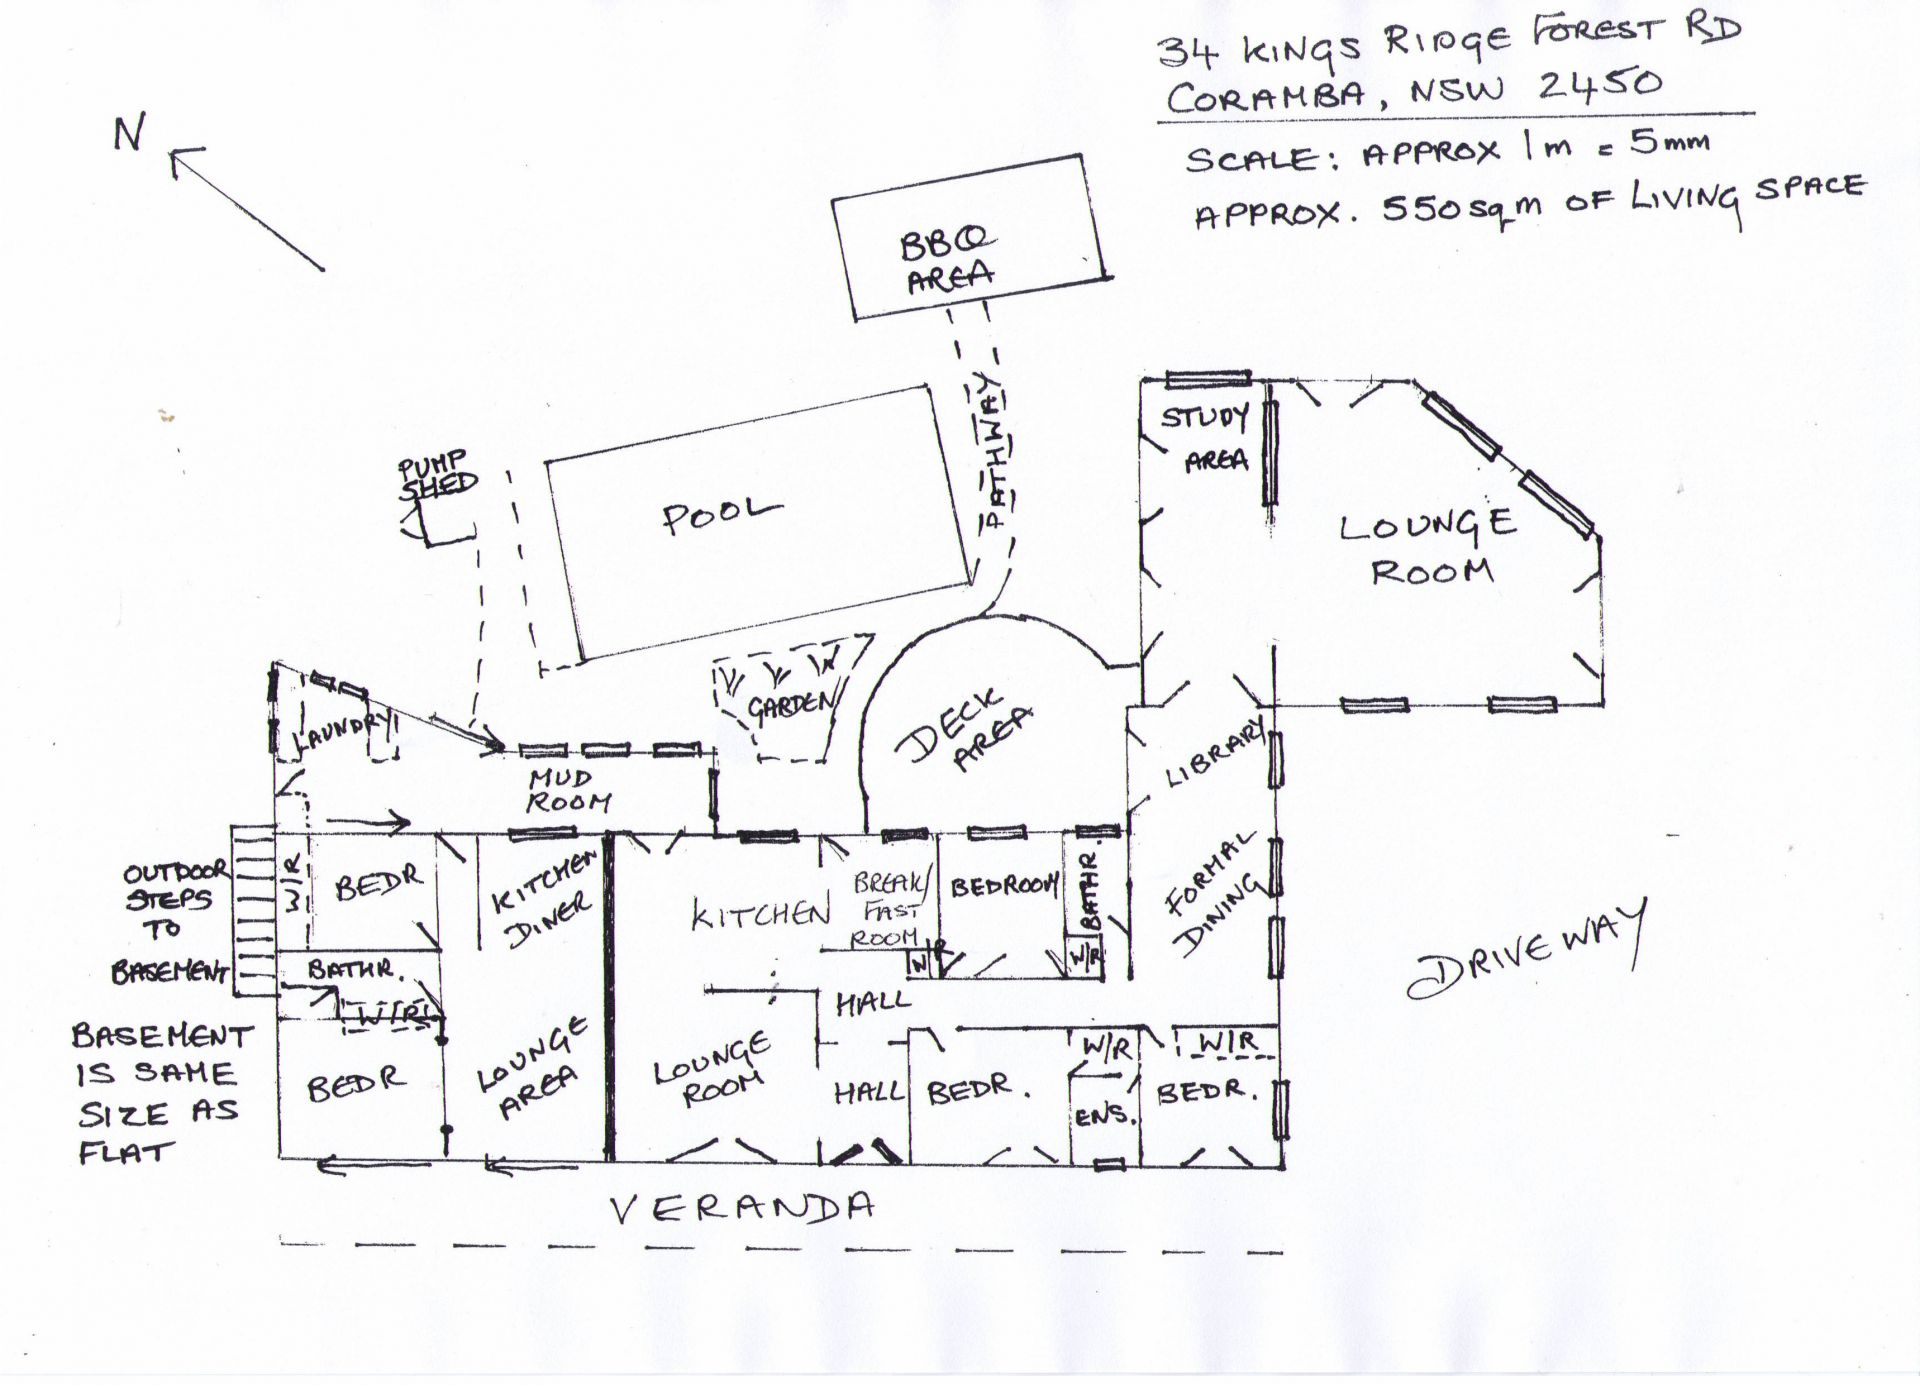 34 KINGS RIDGE FOREST RD
CORAMBA, NSW 2450
SCALE: APPROX 1m = 5mm
APPROX. 550sqm OF LIVING SPACE
N
BBQ
AREA
PATHWAY
STUDY
AREA
LOUNGE
ROOM
PUMP
SHED
POOL
GARDEN
DECK
AREA
LIBRARY
LAUNDRY
MUD
ROOM
OUTDOOR
STEPS
TO
BASEMENT
W/R
BEDR
KITCHEN
DINER
KITCHEN
BREAK/
FAST
ROOM
W/R
BEDROOM
BATHR.
W/R
FORMAL
DINING
DRIVEWAY
BATHR.
W/R
HALL
BASEMENT
IS SAME
SIZE AS
FLAT
BEDR
LOUNGE
AREA
LOUNGE
ROOM
HALL
BEDR.
W/R
ENS.
W/R
BEDR.
VERANDA